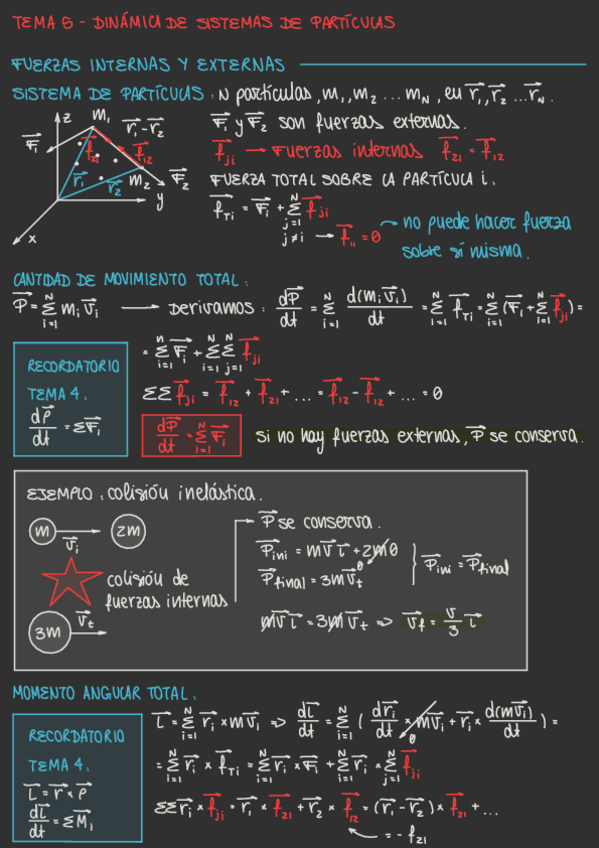 TEMA 5 - DINÁMICA DE SISTEMAS DE PARTÍCULAS
FUERZAS INTERNAS Y EXTERNAS
SISTEMA DE PARTÍCULAS: N partículas, m₁, m₂ ... m_N, en r⃗₁, r⃗₂ ... r⃗_N.
z m₁ r⃗₁-r⃗₂
F⃗₁ f⃗₂₁ f⃗₁₂
r⃗₁ r⃗₂ m₂ F⃗₂
y
x
F⃗₁ y F⃗₂ son fuerzas externas.
f⃗ⱼᵢ → Fuerzas internas f⃗₂₁ = f⃗₁₂
FUERZA TOTAL SOBRE LA PARTÍCULA i.
f⃗_Ti = F⃗ᵢ + Σ_{j=1, j≠i}^{N} f⃗ⱼᵢ
→ f⃗ᵢᵢ = 0 → no puede hacer fuerza
sobre sí misma.
CANTIDAD DE MOVIMIENTO TOTAL:
P⃗ = Σ_{i=1}^{N} mᵢv⃗ᵢ → Derivamos: dP⃗/dt = Σ_{i=1}^{N} d(mᵢv⃗ᵢ)/dt = Σ_{i=1}^{N} f⃗_Ti = Σ_{i=1}^{N} (F⃗ᵢ + Σ_{i=1}^{N} f⃗ⱼᵢ) =
= Σ_{i=1}^{n} F⃗ᵢ + Σ_{i=1}^{N} Σ_{j=1}^{N} f⃗ⱼᵢ
RECORDATORIO
TEMA 4:
dP⃗/dt = ΣF⃗ᵢ
ΣΣ f⃗ⱼᵢ = f⃗₁₂ + f⃗₂₁ + ... = f⃗₁₂ - f⃗₁₂ + ... = 0
dP⃗/dt = Σ_{i=1}^{N} F⃗ᵢ si no hay fuerzas externas, P⃗ se conserva.
EJEMPLO: colisión inelástica.
m v⃗ᵢ 2m
colisión de
fuerzas internas
3m v⃗_t
P⃗ se conserva.
P⃗ini = mv⃗ i⃗ + 2m0 0
P⃗final = 3mv⃗_t
P⃗ini = P⃗final
mv⃗ i⃗ = 3mv⃗_t => v⃗_f = v/3 i⃗
MOMENTO ANGULAR TOTAL:
L⃗ = Σ_{i=1}^{N} r⃗ᵢ × mv⃗ᵢ => dL⃗/dt = Σ_{i=1}^{N} (dr⃗ᵢ/dt × mv⃗ᵢ + r⃗ᵢ × d(mv⃗ᵢ)/dt) =
0
= Σ_{i=1}^{N} r⃗ᵢ × f⃗_Ti = Σ_{i=1}^{N} r⃗ᵢ × F⃗ᵢ + Σ_{i=1}^{N} r⃗ᵢ × Σ_{j=1}^{N} f⃗ⱼᵢ
RECORDATORIO
TEMA 4:
L⃗ = r⃗ × P⃗
dL⃗/dt = ΣM⃗ᵢ
ΣΣ r⃗ᵢ × f⃗ⱼᵢ = r⃗₁ × f⃗₂₁ + r⃗₂ × f⃗₁₂ = (r⃗₁ - r⃗₂) × f⃗₂₁ + ...
= - f₂₁